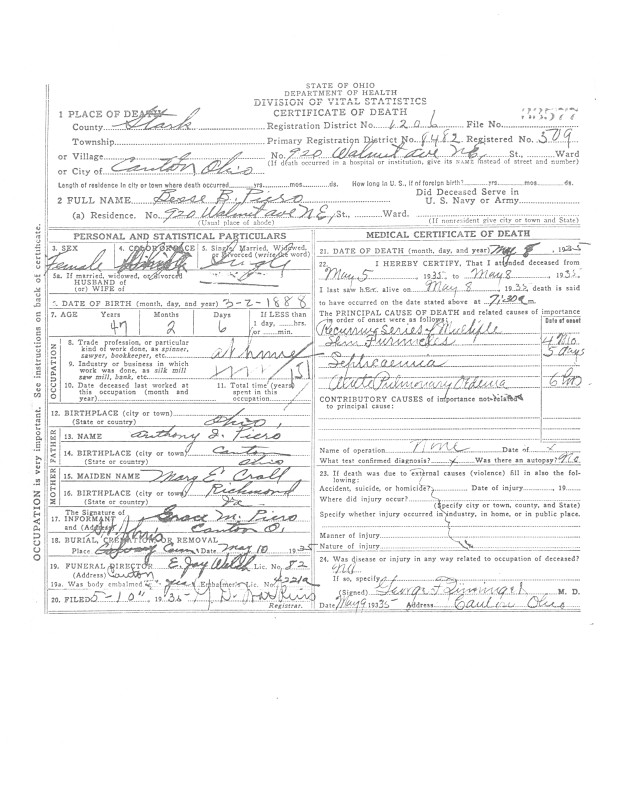 STATE OF OHIO
DEPARTMENT OF HEALTH
DIVISION OF VITAL STATISTICS
CERTIFICATE OF DEATH
1 PLACE OF DEATH
County Stark Registration District No. 1206 File No.
Township Primary Registration District No. 8482 Registered No. 509
or Village No. 920 Walnut Ave NE, St., Ward
or City of Canton Ohio (If death occurred in a hospital or institution, give its NAME instead of street and number)
Length of residence in city or town where death occurred yrs. mos. ds. How long in U. S., if of foreign birth? yrs. mos. ds.
2 FULL NAME Besse B. Piero Did Deceased Serve in U. S. Navy or Army
(a) Residence. No. 920 Walnut ave NE, St., Ward.
(Usual place of abode) (If nonresident give city or town and State)
PERSONAL AND STATISTICAL PARTICULARS
3. SEX 4. COLOR OR RACE 5. Single, Married, Widowed, or Divorced (write the word)
Female Single
5a. If married, widowed, or divorced
HUSBAND of
(or) WIFE of
6. DATE OF BIRTH (month, day, and year) 3-2-1888
7. AGE Years Months Days If LESS than
47 2 6 1 day, hrs.
or min.
OCCUPATION
8. Trade, profession, or particular kind of work done, as spinner, sawyer, bookkeeper, etc. at home
9. Industry or business in which work was done, as silk mill saw mill, bank, etc.
10. Date deceased last worked at this occupation (month and year)
11. Total time (years) spent in this occupation
12. BIRTHPLACE (city or town)
(State or country) Ohio
FATHER
13. NAME Anthony J. Piero
14. BIRTHPLACE (city or town) Canton
(State or country) Ohio
MOTHER
15. MAIDEN NAME Mary E. Crall
16. BIRTHPLACE (city or town) Richmond
(State or country) Va
The Signature of
17. INFORMANT Grace M. Piero
and (Address) Canton O.
18. BURIAL, CREMATION, OR REMOVAL
Place Date May 10 1935
19. FUNERAL DIRECTOR E. Jay Welsh Lic. No. 82
(Address) Canton
19a. Was body embalmed yes Embalmer's Lic. No. 4221a
20. FILED 5-10" 1935
Registrar.
MEDICAL CERTIFICATE OF DEATH
21. DATE OF DEATH (month, day, and year) May 8, 1935
22. I HEREBY CERTIFY, That I attended deceased from
May 5, 1935, to May 8, 1935.
I last saw her alive on May 8, 1935, death is said
to have occurred on the date stated above at 7:30 a m.
The PRINCIPAL CAUSE OF DEATH and related causes of importance in order of onset were as follows: Date of onset
Recurring Series of Multiple
Skin Furuncles 4 Mo
Septicaemia 5 days
Acute Pulmonary Edema 6 hrs
CONTRIBUTORY CAUSES of importance not related to principal cause:
Name of operation None Date of x
What test confirmed diagnosis? x Was there an autopsy? No
23. If death was due to external causes (violence) fill in also the following:
Accident, suicide, or homicide? Date of injury , 19
Where did injury occur?
(Specify city or town, county, and State)
Specify whether injury occurred in industry, in home, or in public place.
Manner of injury
Nature of injury
24. Was disease or injury in any way related to occupation of deceased?
No
If so, specify
(Signed) George F. Zinninger M. D.
Date May 9 1935 Address Canton Ohio
OCCUPATION is very important. See instructions on back of certificate.